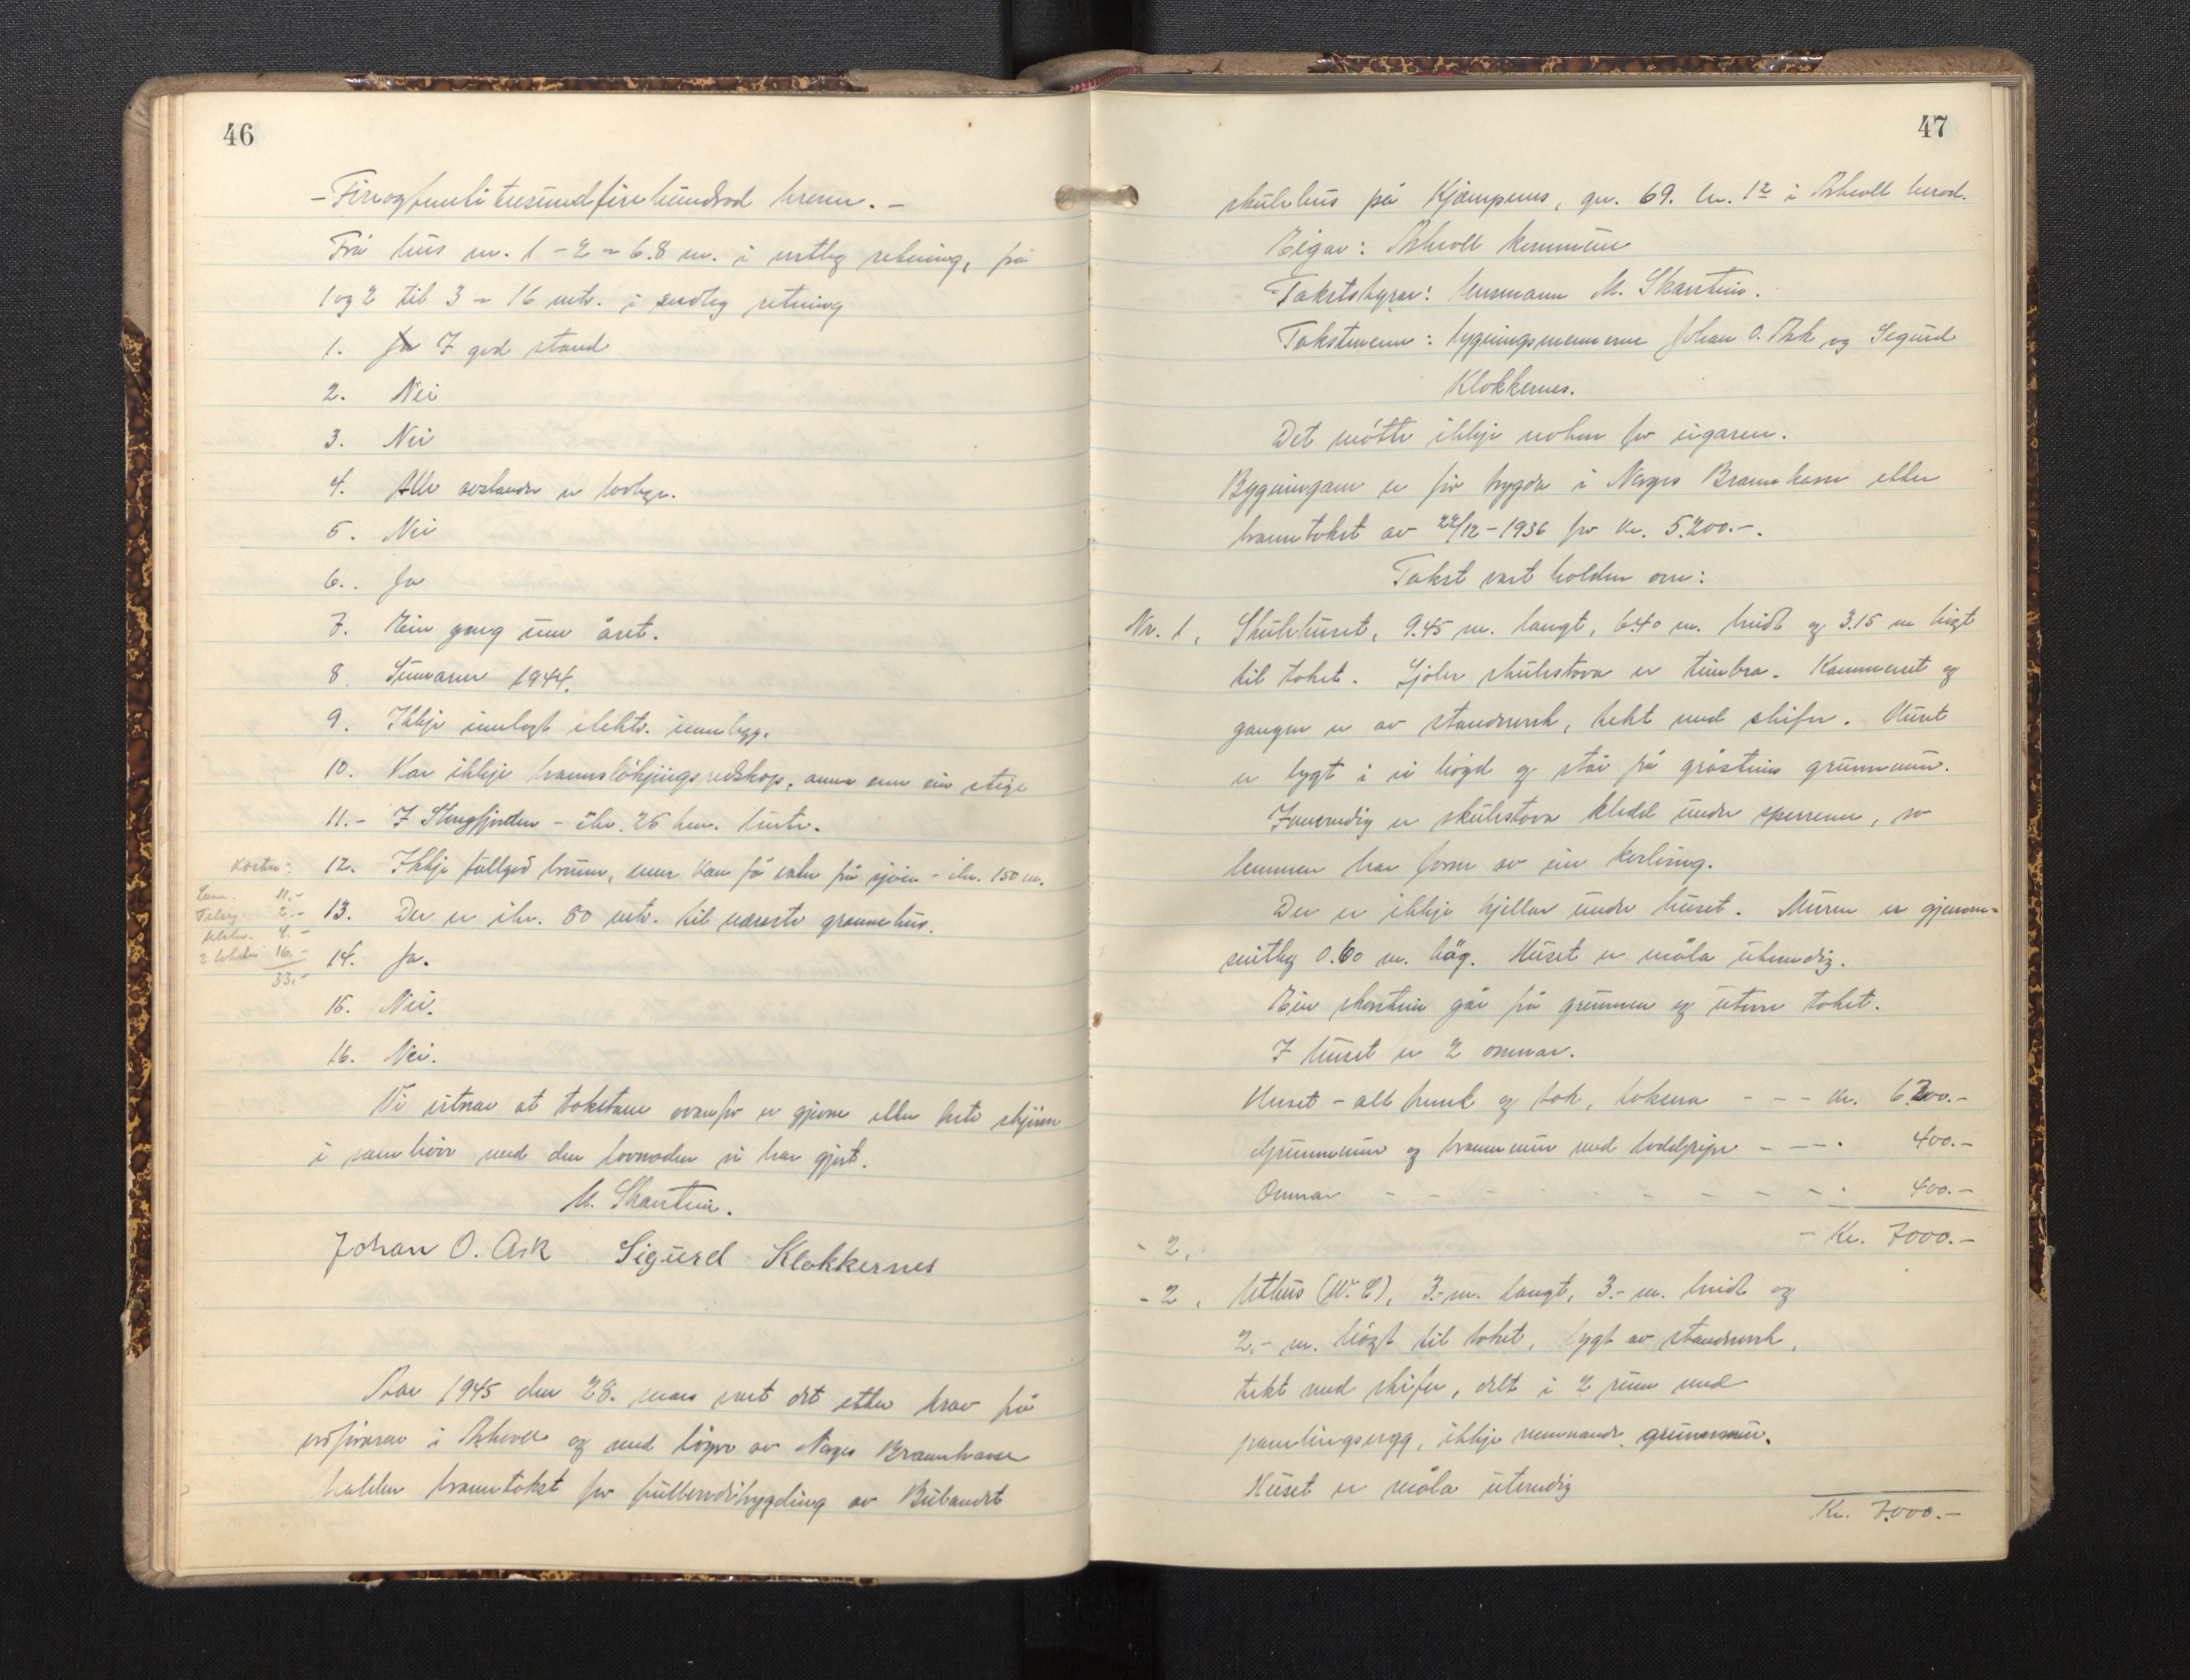 46
- Fireogfemti tusund fire hundrad kroner. -
Frå hus nr. 1 - 2 = 6.8 m. i vestleg retning, frå
1 og 2 til 3 = 16 mtr. i sudleg retning
1. I god stand
2. Nei
3. Nei
4. Alle avstandar er lovlege.
5. Nei
6. Ja
7. Ein gong um året.
8. Sumaren 1944.
9. Ikkje innlagt elektr.
10. Har ikkje brannsløkjingsreidskap, anna enn ein stige
11. - I Stongfjorden - ikr. 26 km. burte.
12. Ikkje fullgod brunn, men kan få vatn frå sjøen - ikr. 150 m.
13. Der er ikr. 50 mtr. til næraste grannehus.
14. Ja.
15. Nei.
16. Nei.
Kostn:
11.-
2.-
4.-
2 16.-
33.-
Vi vitnar at takstane ovanfor er gjevne etter beste skjønn
i samhøve med den lovnaden vi har gjort.
M. Skarstein.
Johan O. Ask Sigurd Klokkernes
Aar 1945 den 28. mars vart det etter krav frå
ordføraren i Askvoll og med løyve av Norges Brannkasse
halden branntakst for fullverditrygding av Bulandet
47
skulehus på Kjempenes, gn. 69. bn. 12 i Askvoll herad.
Eigar: Askvoll kommune
Takststyrar: lensmann M. Skarstein.
Takstmenn: bygningsmennerne Johan O. Ask og Sigurd
Klokkernes.
Det møtte ikkje nokon for eigaren.
Bygningane er før trygda i Norges Brannkasse etter
branntakst av 22/12-1936 for kr. 5.200.-.
Takst vart halden over:
Nr. 1, Skulehuset, 9.45 m. langt, 6.40 m. breidt og 3.15 m høgt
til taket. Sjølve skulestova er timbra. Kammerset og
gangen er av standverk, tekt med skifer. Huset
er bygt i ei høgd og står på gråsteins grunnmur.
Innvendig er skulestova kledd under sperrene, so
lemmen har form av ein kvelving.
Der er ikkje kjellar under huset. Muren er gjenom-
snitleg 0.60 m. høg. Huset er måla utvendig.
Ein skorstein går frå grunnen og utum taket.
I huset er 2 omnar.
Huset - alt bunt og tak, taksera - - - kr. 6200.-
Grunnmur og brannmur med loddpipe - - - . 400.-
Omnar - - - - - - - - - . 400.-
- Kr. 7000.-
- 2,
- 2, Uthus (W.C), 3.- m. langt, 3.- m. breidt og
2.- m. høgt til taket, bygt av standverk,
tekt med skifer, delt i 2 rum med
panelingsvegg, ikkje nemnande grunnmur.
Huset er måla utvendig
Kr. 7.000.-